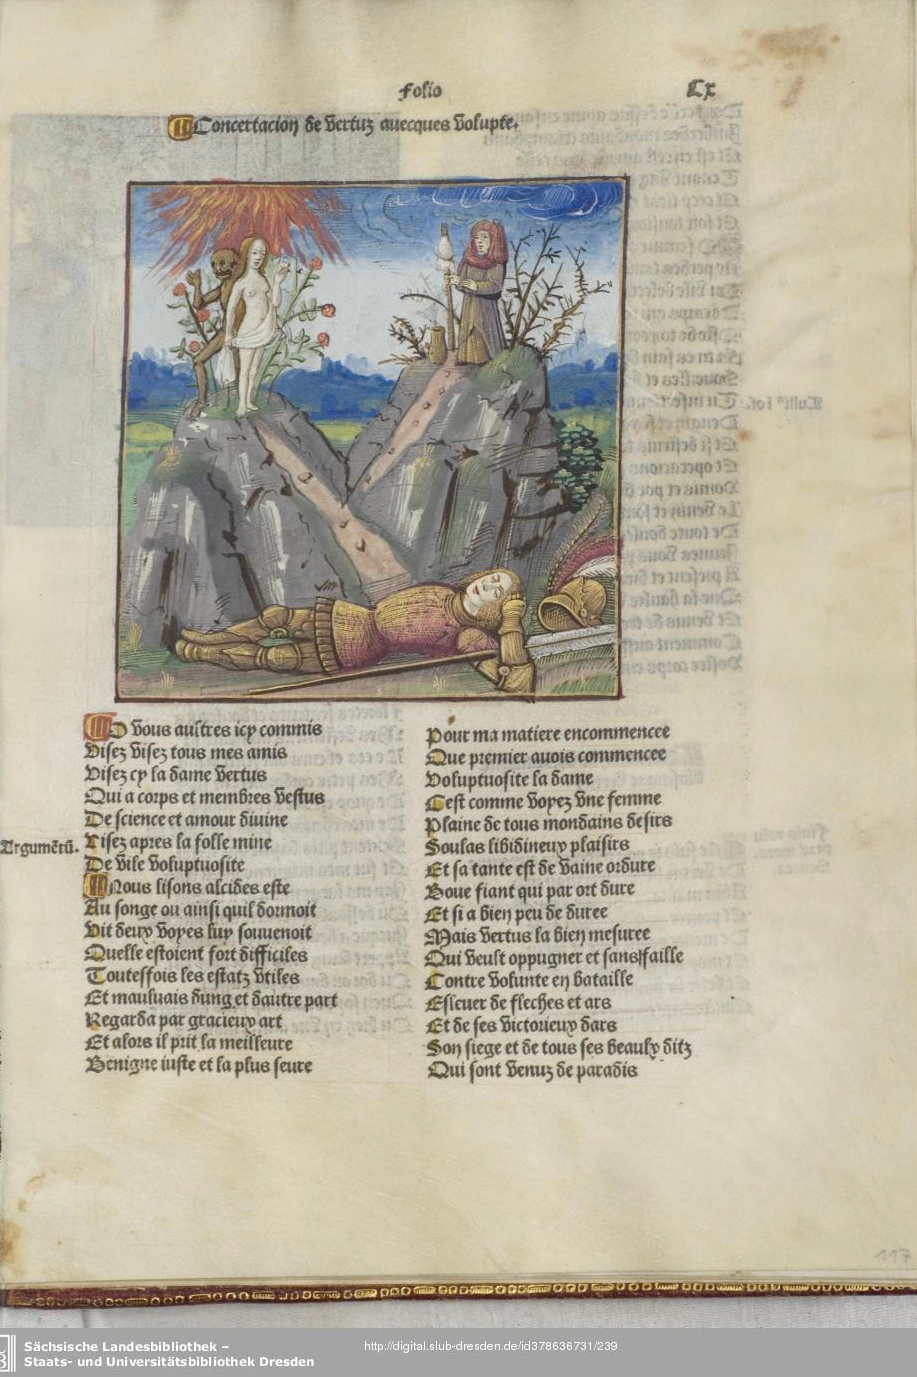 Folio
Cx
Concertacion de vertuz auecques volupte.
O vous aultres icy commis
Visez visez tous mes amis
Visez cy la dame vertus
Qui a corps et membres vestus
De science et amour diuine
Argumētū.
Visez apres la folle mine
De vile voluptuosite
Nous lisons alcides este
Au songe ou ainsi quil dormoit
Vit deux voyes luy souuenoit
Quelle estoient fort difficiles
Toutesfois les estatz vtiles
Et mauluais dung et dautre part
Regarda par gracieux art
Et alors il prit la meilleure
Benigne iuste et la plus seure
Pour ma matiere encommencee
Que premier auois commencee
Voluptuosite la dame
Cest comme voyez vne femme
Plaine de tous mondains desirs
Soulas libidineux plaisirs
Et sa tante est de vaine ordure
Boue fiant qui par ort dure
Et si a bien peu de duree
Mais vertus la bien mesuree
Qui veult oppugner et sans faille
Contre volunte en bataille
Esleuer de fleches et ars
Et de ses victorieux dars
Son siege et de tous ses beaulx ditz
Qui sont venuz de paradis
117
Sächsische Landesbibliothek –
Staats- und Universitätsbibliothek Dresden
http://digital.slub-dresden.de/id378636731/239